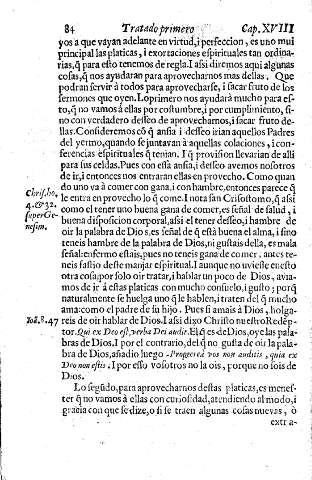 84 Tratado primero Cap. XVIII
yos a que vayan adelante en virtud, i perfeccion, es uno mui
principal las platicas, i exortaciones espirituales tan ordina-
rias, q̃ para esto tenemos de regla. I assi diremos aqui algunas
cosas, q̃ nos ayudaran para aprovecharnos mas dellas. Que
podran servir à todos para aprovecharse, i sacar fruto de los
sermones que oyen. Lo primero nos ayudarà mucho para es-
to, q̃ no vamos à ellas por costumbre, i por cumplimiento, si-
no con verdadero desseo de aprovecharnos, i sacar fruto de-
llas. Consideremos cõ q̃ ansia i desseo irian aquellos Padres
del yermo, quando se juntavan à aquellas colaciones, i con-
ferencias espirituales q̃ tenian. I q̃ provision llevarian de alli
para sus celdas. Pues con essa ansia, i desseo avemos nosotros
de ir, i entonces nos entraràn ellas en provecho. Como quan
do uno va à comer con gana, i con hambre, entonces parece q̃
le entra en provecho lo q̃ come. I nota san Crisostomo, q̃ assi
como el tener uno buena gana de comer, es señal de salud, i
buena disposicion corporal, assi el tener desseo, i hambre de
oir la palabra de Dios, es señal de q̃ està buena el alma, i sino
teneis hambre de la palabra de Dios, ni gustais della, es mala
señal: enfermo estais, pues no teneis gana de comer, antes te-
neis fastio deste manjar espiritual. I aunque no uviesse en esto
otra cosa, por solo oir tratar, i hablar un poco de Dios, avia-
mos de ir à estas platicas con mucho consuelo, i gusto; porq̃
naturalmente se huelga uno q̃ le hablen, i traten del q̃ mucho
ama: como el padre de su hijo. Pues si amais à Dios, holga-
reis de oir hablar de Dios. I assi dize Christo nuestro Redẽp-
tor. Qui ex Deo est, verba Dei audit. El q̃ es de Dios, oye las pala-
bras de Dios. I por el contrario, del q̃ no gusta de oir la pala-
bra de Dios, añadio luego Propterea vos non auditis, quia ex
Deo non estis. I por esso vosotros no la ois, porque no sois de
Dios.
Lo segũdo, para aprovecharnos destas platicas, es menes-
ter q̃ no vamos à ellas con curiosidad, atendiendo al modo, i
gracia con que se dize, o si se traen algunas cosas nuevas, ò
extra-
Chris. ho.
4. & 32.
super Ge-
nesim.
Ioã. 8. 47